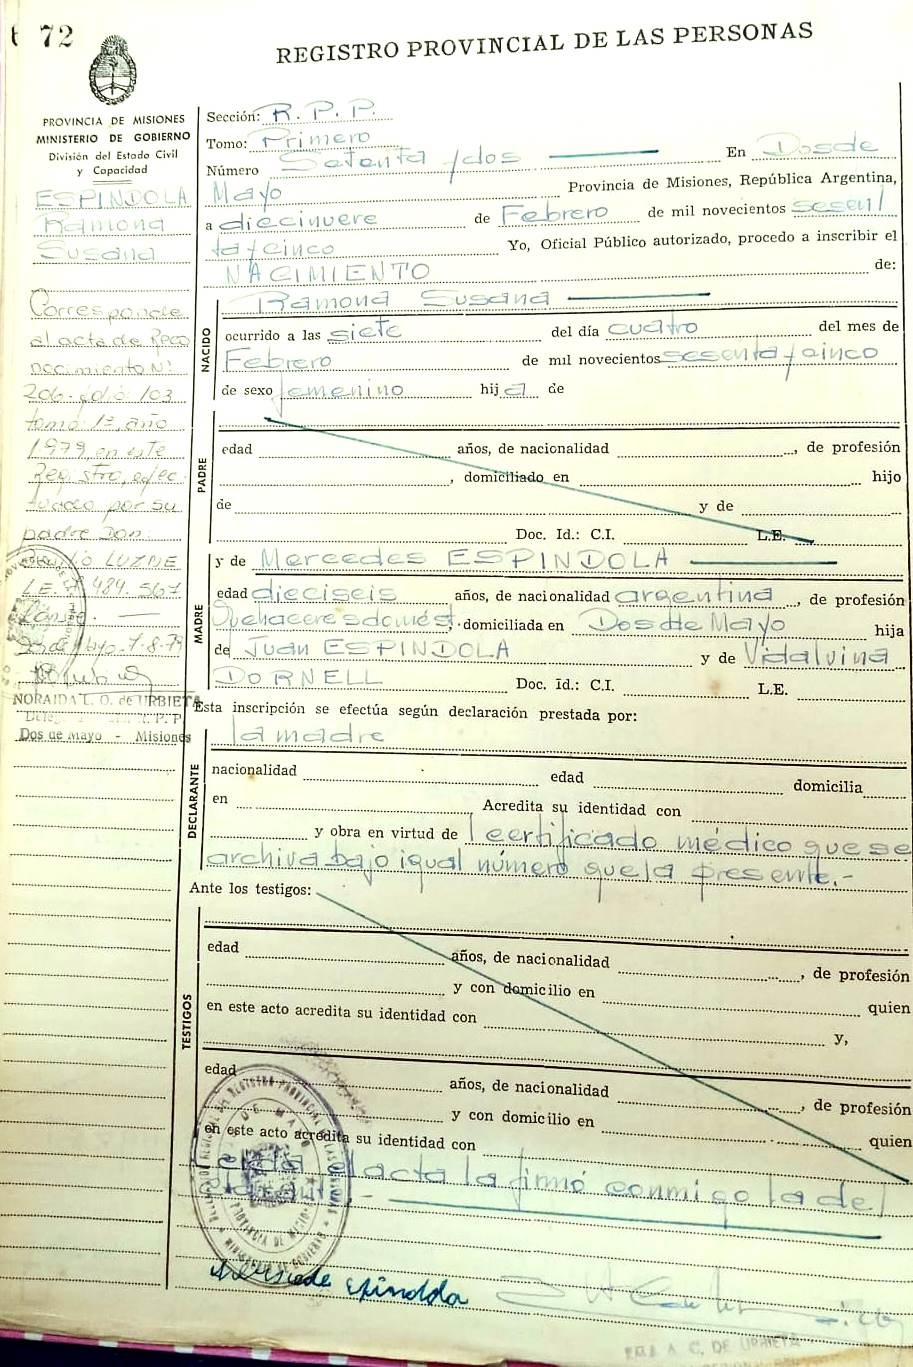 72
REGISTRO PROVINCIAL DE LAS PERSONAS
PROVINCIA DE MISIONES
MINISTERIO DE GOBIERNO
División del Estado Civil
y Capacidad
ESPINDOLA
Ramona
Susana
Corresponde
al acta de Reco
nocimiento Nº
206 folio 103
tomo 1º, año
1979, en este
Registro, efec
tuado por su
padre Don
LUZNE
L.E. 7.484.567
7-8-79
NORAIDA L. O. de URBIETA
R. P. P.
Dos de Mayo - Misiones
Sección: R. P. P.
Tomo: Primero
Número Setenta y dos En Dos de
Mayo Provincia de Misiones, República Argentina,
a diecinueve de Febrero de mil novecientos sesen
ta y cinco Yo, Oficial Público autorizado, procedo a inscribir el
NACIMIENTO de:
NACIDO
Ramona Susana
ocurrido a las siete del día cuatro del mes de
Febrero de mil novecientos sesenta y cinco
de sexo femenino hija de
PADRE
edad años, de nacionalidad , de profesión
, domiciliado en hijo
de y de
Doc. Id.: C.I. L.E.
MADRE
y de Mercedes ESPINDOLA
edad dieciseis años, de nacionalidad argentina , de profesión
Quehaceres domést. domiciliada en Dos de Mayo hija
de Juan ESPINDOLA y de Vidalvina
DORNELL Doc. Id.: C.I. L.E.
Esta inscripción se efectúa según declaración prestada por:
DECLARANTE
la madre
nacionalidad edad domicilia
en Acredita su identidad con
y obra en virtud de certificado médico que se
archiva bajo igual número que la presente.-
Ante los testigos:
TESTIGOS
edad años, de nacionalidad , de profesión
y con domicilio en quien
en este acto acredita su identidad con
y,
edad años, de nacionalidad , de profesión
y con domicilio en quien
en este acto acredita su identidad con
Leida el acta la firmó conmigo la de
Mersede Espindola
C. DE URBIETA